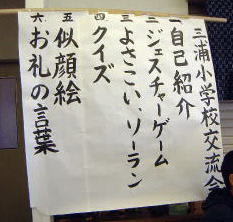 三浦小学校交流会
一 自己紹介
二 ジェスチャーゲーム
三 よさこい、ソーラン
四 クイズ
五 似顔絵
六 お礼の言葉